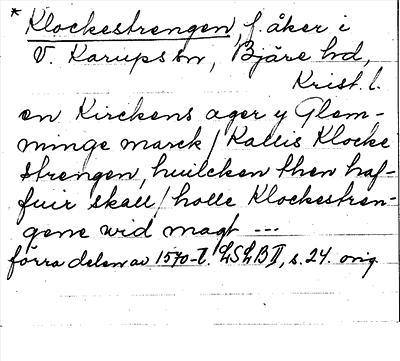 * Klockestrengen, f. åker i
V. Karups sn, Bjäre hd,
Krist. l.
en Kirckens ager y Glem-
minge marck / Kallis Klocke
strengen, huilcken then haf-
fuir skall / holle Klockestren-
gene wid magt ---
förra delen av 1570-t. LSLB II, s. 24. orig